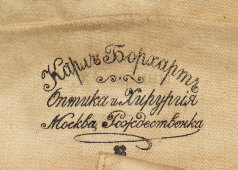 Карлъ Борхартъ
Оптика и Хирургия
Москва, Рождественка